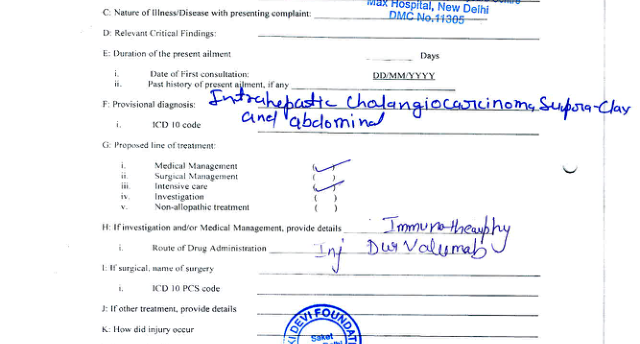 Max Hospital, New Delhi
C: Nature of Illness/Disease with presenting complaint:
DMC No.11305
D: Relevant Critical Findings:
E: Duration of the present ailment Days
i. Date of First consultation: DD/MM/YYYY
ii. Past history of present ailment, if any
F: Provisional diagnosis: Intrahepastic Cholangiocarcinoma, Supora-Clay
and abdominal
i. ICD 10 code
G: Proposed line of treatment:
i. Medical Management (✓)
ii. Surgical Management ( )
iii. Intensive care (✓)
iv. Investigation ( )
v. Non-allopathic treatment ( )
H: If investigation and/or Medical Management, provide details Immunotheauphy
i. Route of Drug Administration Inj Durvalumab
I: If surgical, name of surgery
i. ICD 10 PCS code
J: If other treatment, provide details
K: How did injury occur
KI DEVI FOUNDAT
Saket